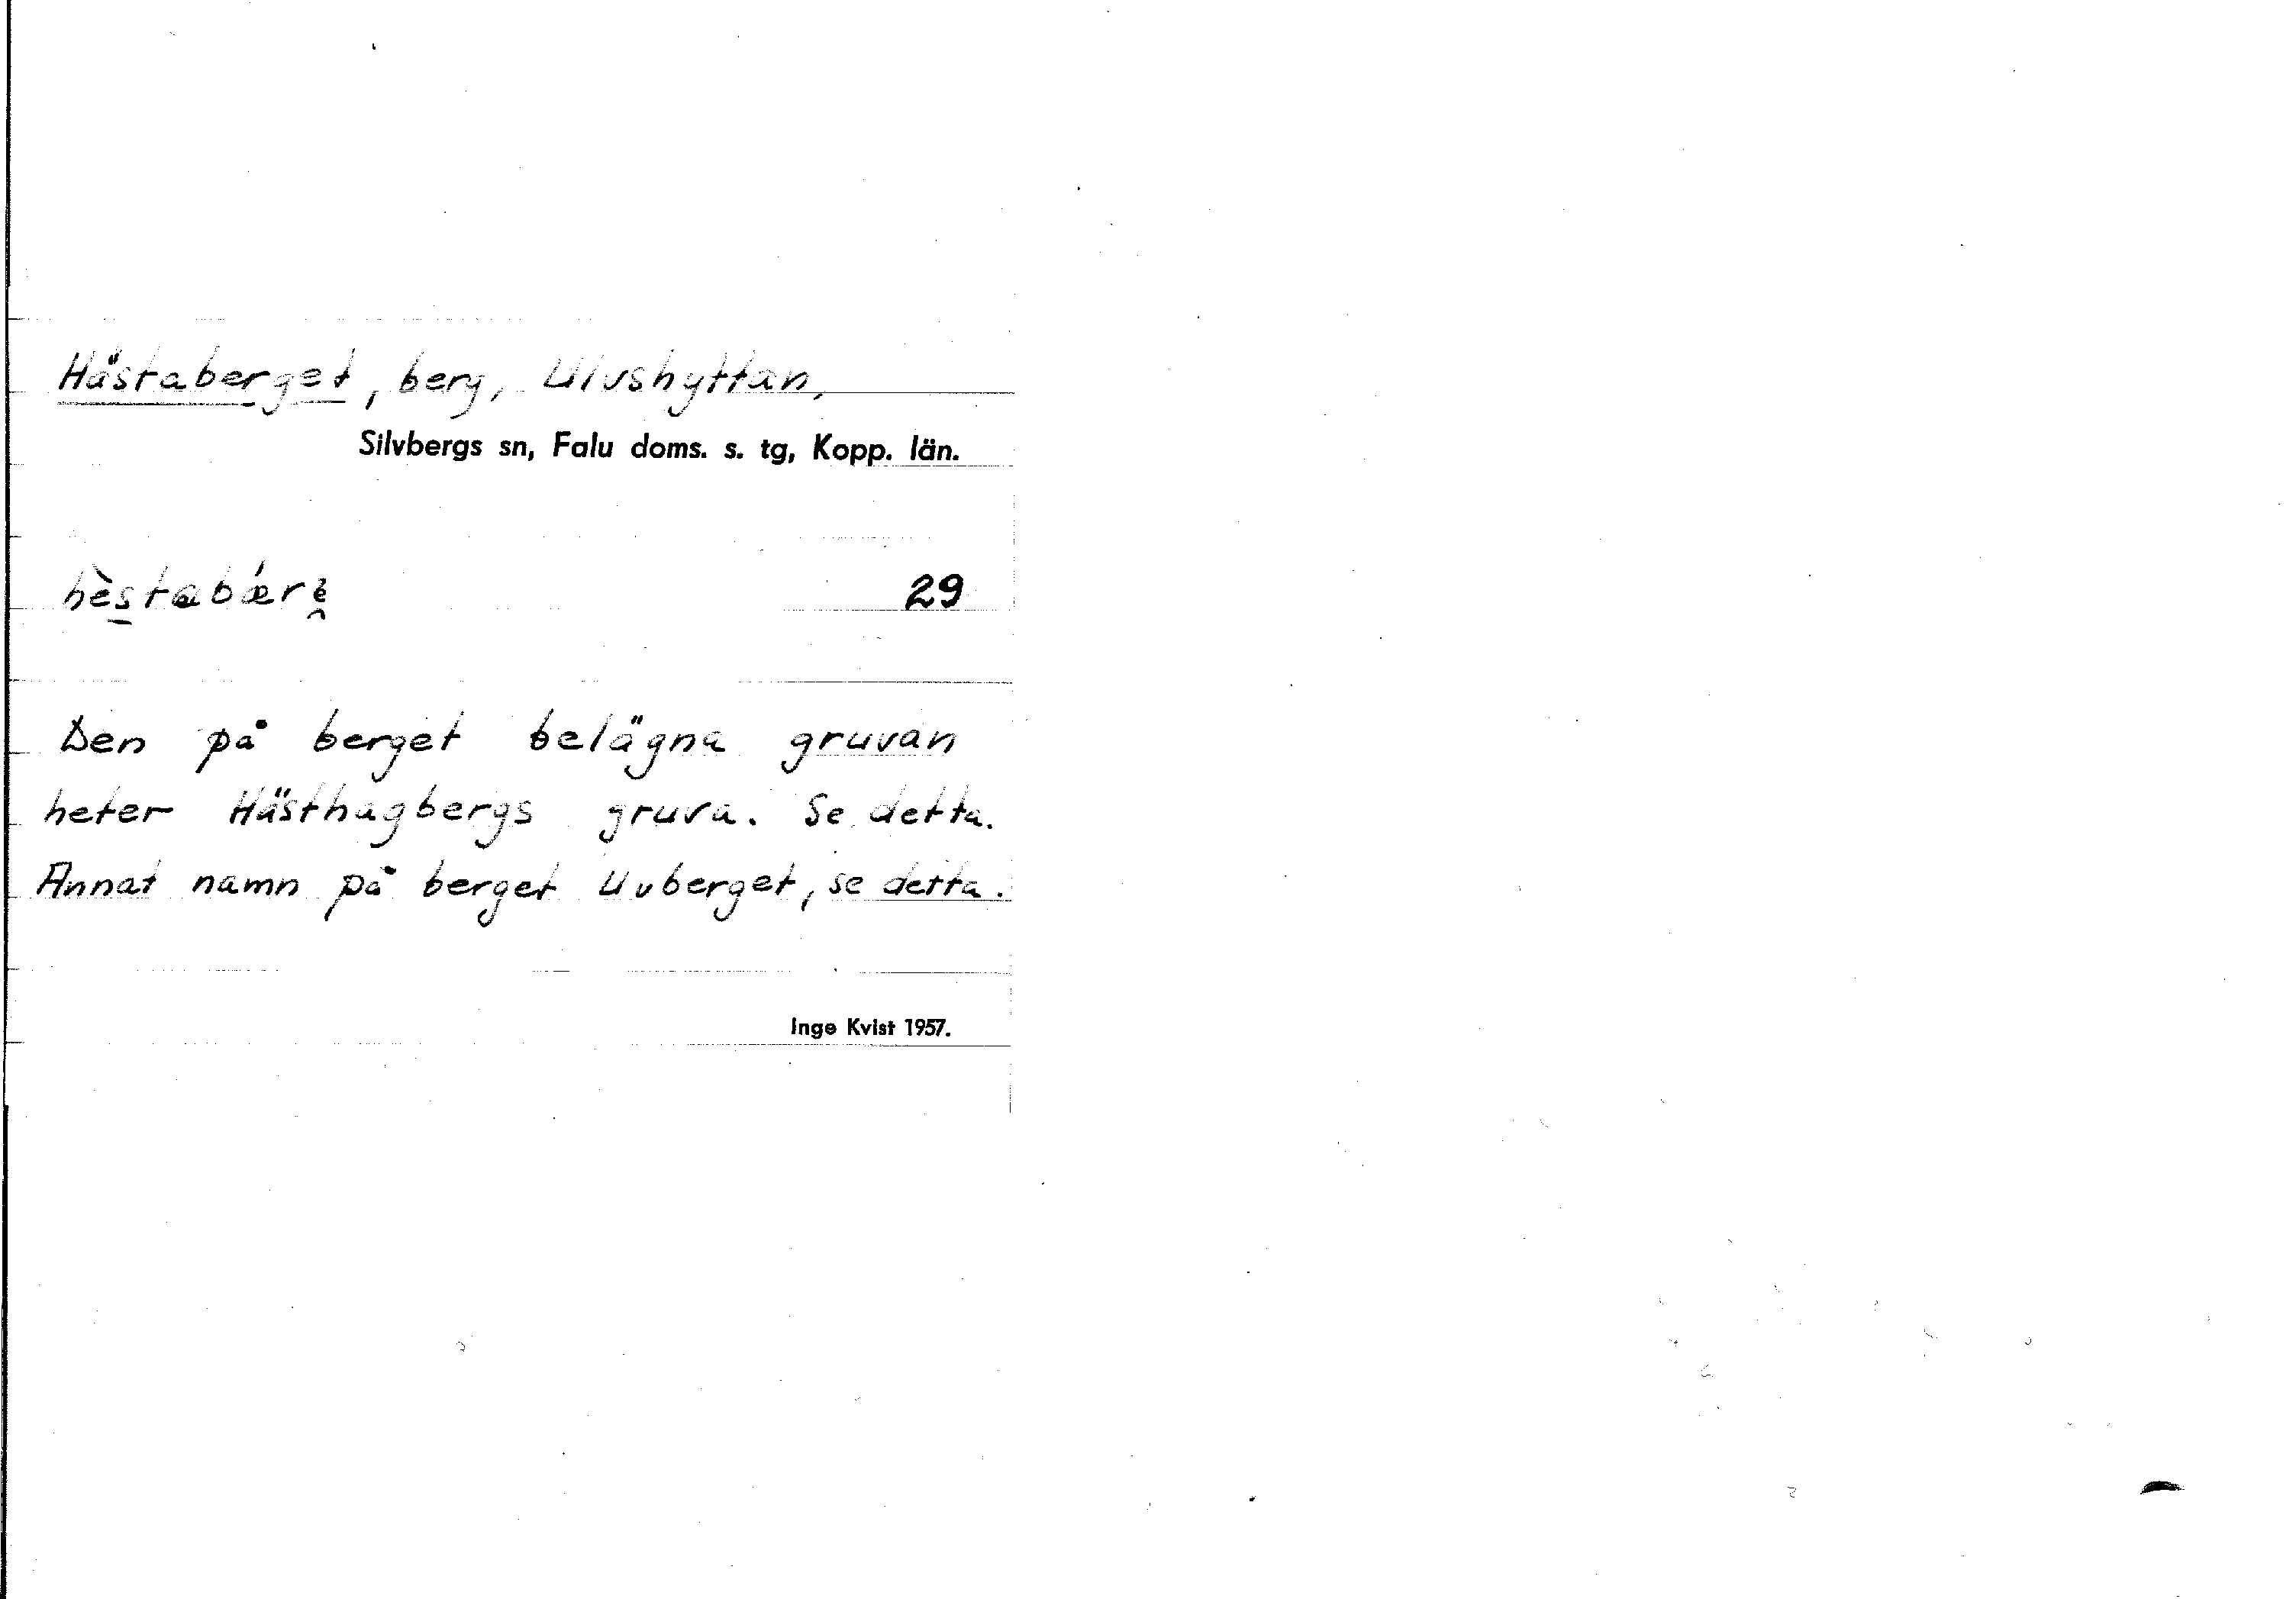 Hästaberget, berg, Ulvshyttan,
Silvbergs sn, Falu doms. s. tg, Kopp. län.
hèstabǽrę 29
Den på berget belägna gruvan
heter Hästhagbergs gruva. Se detta.
Annat namn på berget Uvberget, se detta.
Inge Kvist 1957.